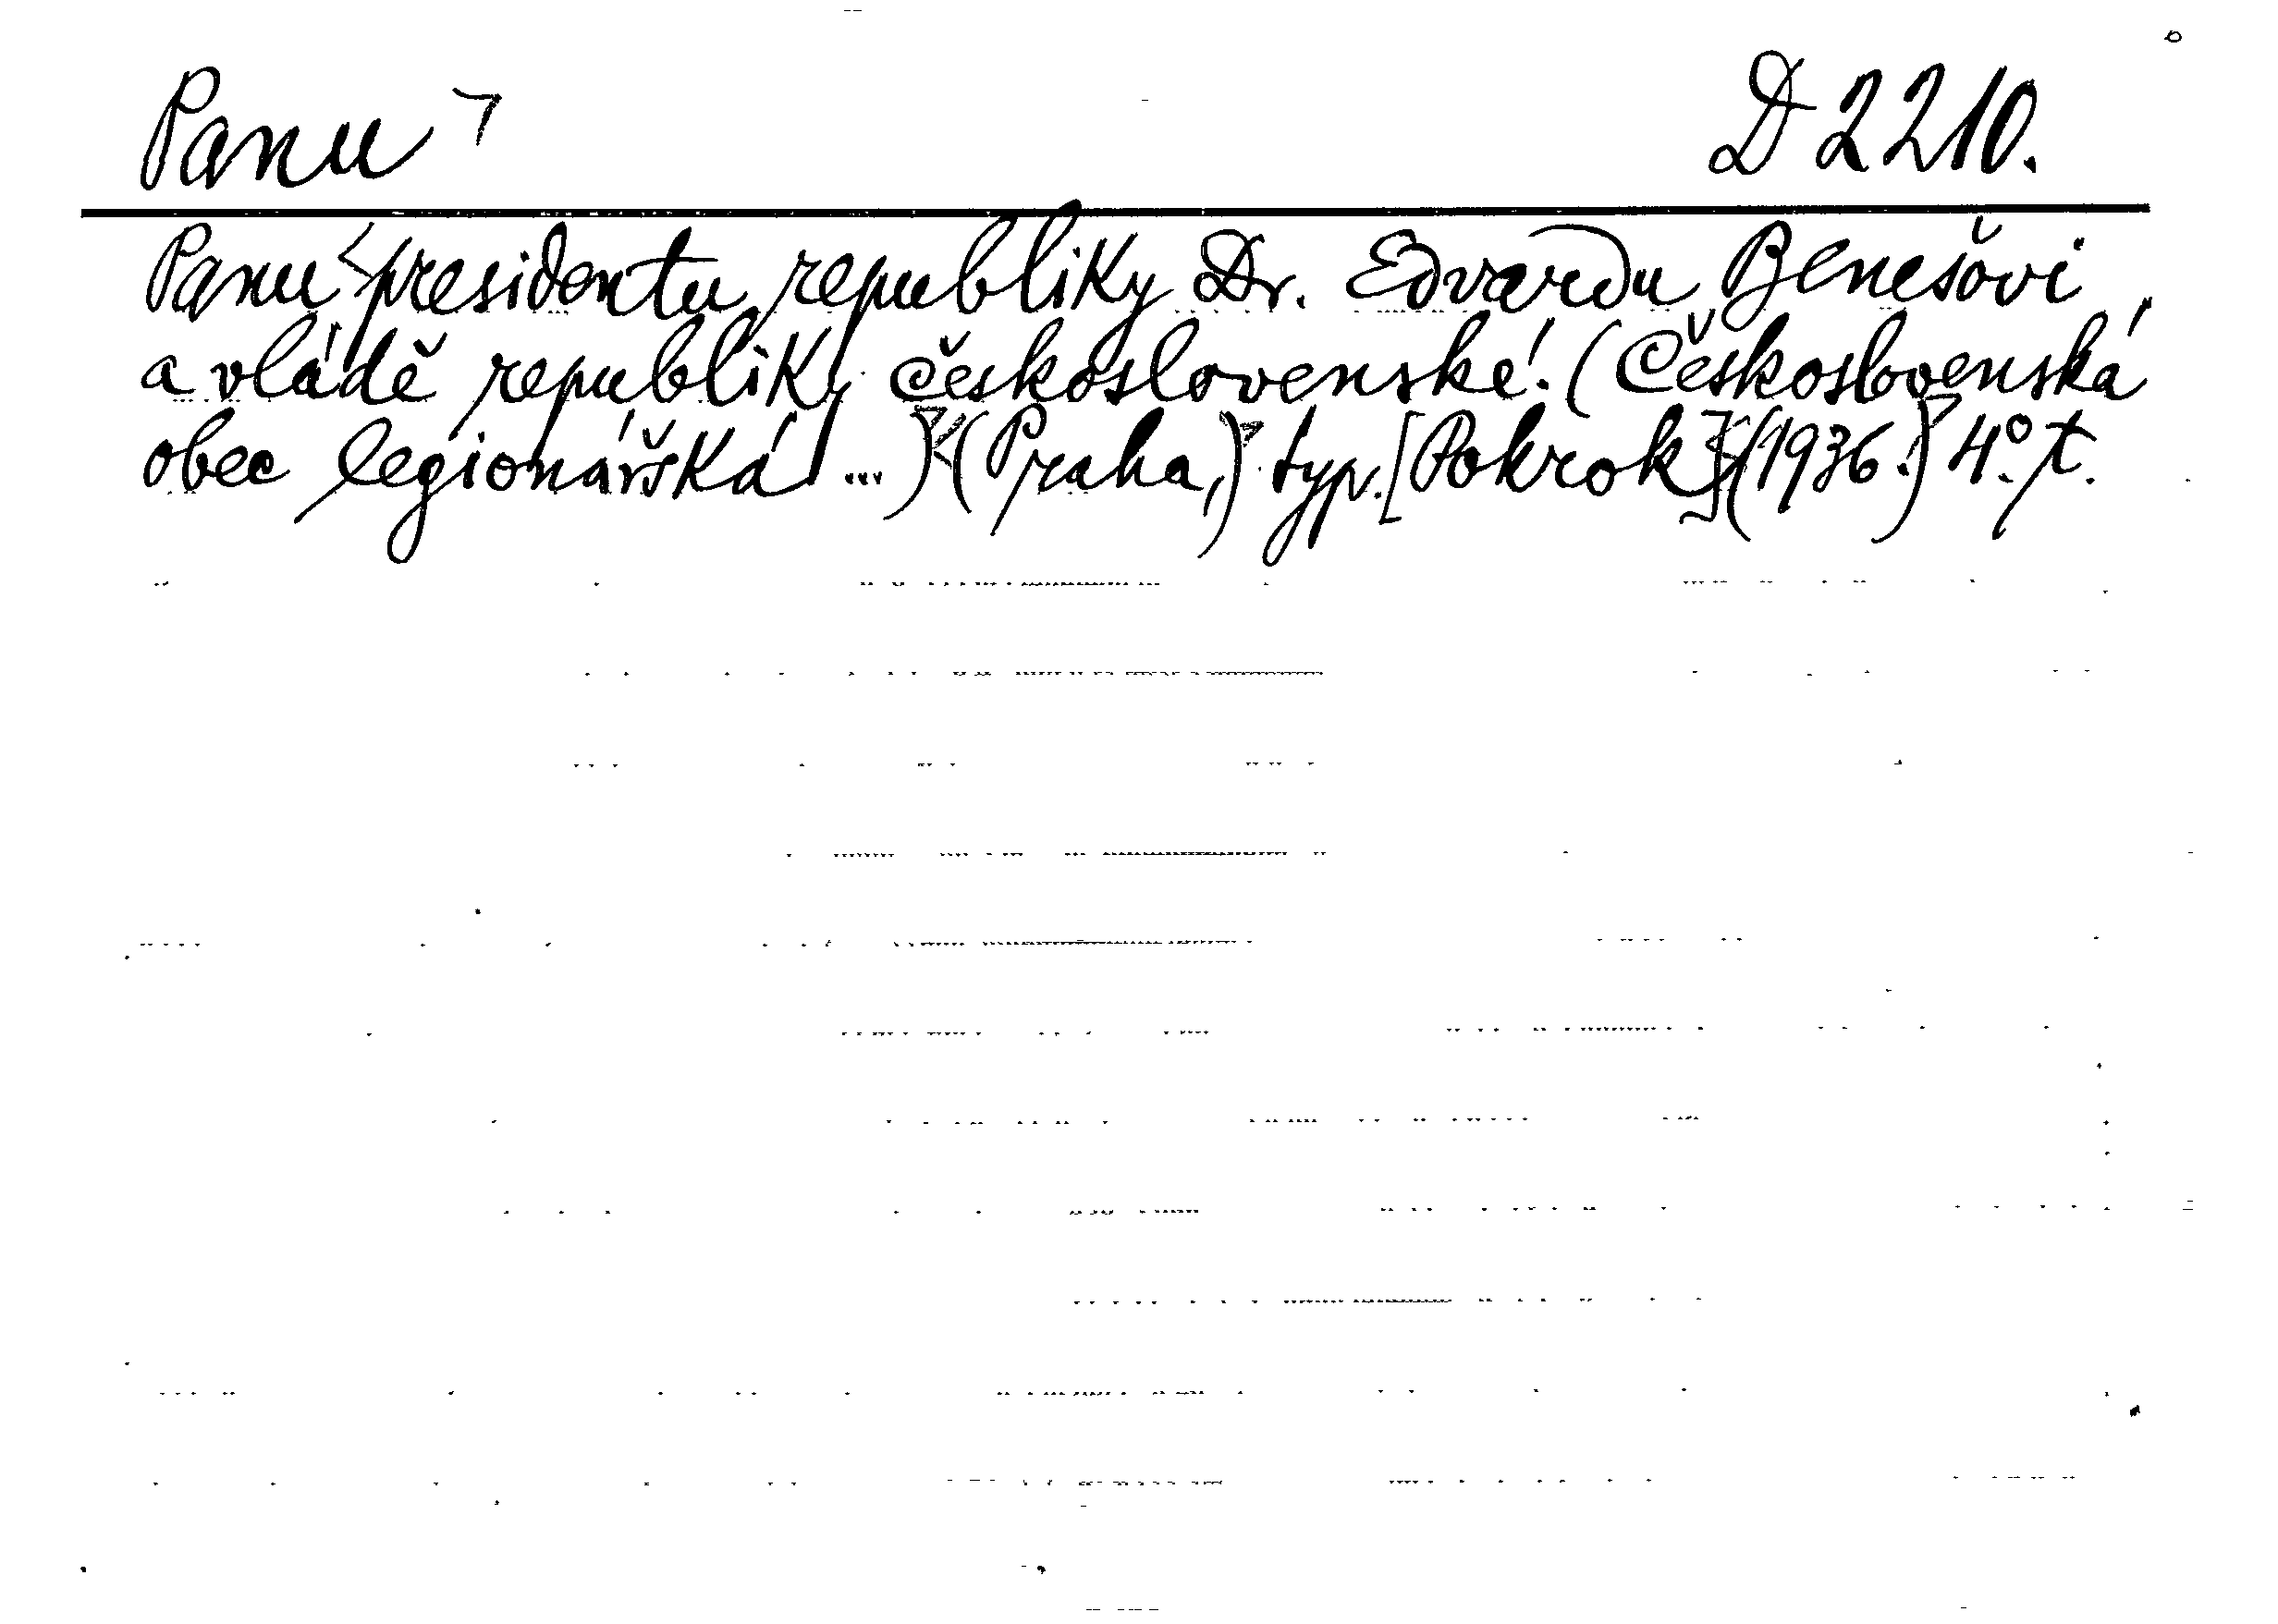 Panu D 2210.
Panu presidentu republiky Dr. Edvardu Benešovi
a vládě republiky československé! (Československá
obec legionářská ...) (Praha,) typ. [Pokrok] (1936.) 4°. t.